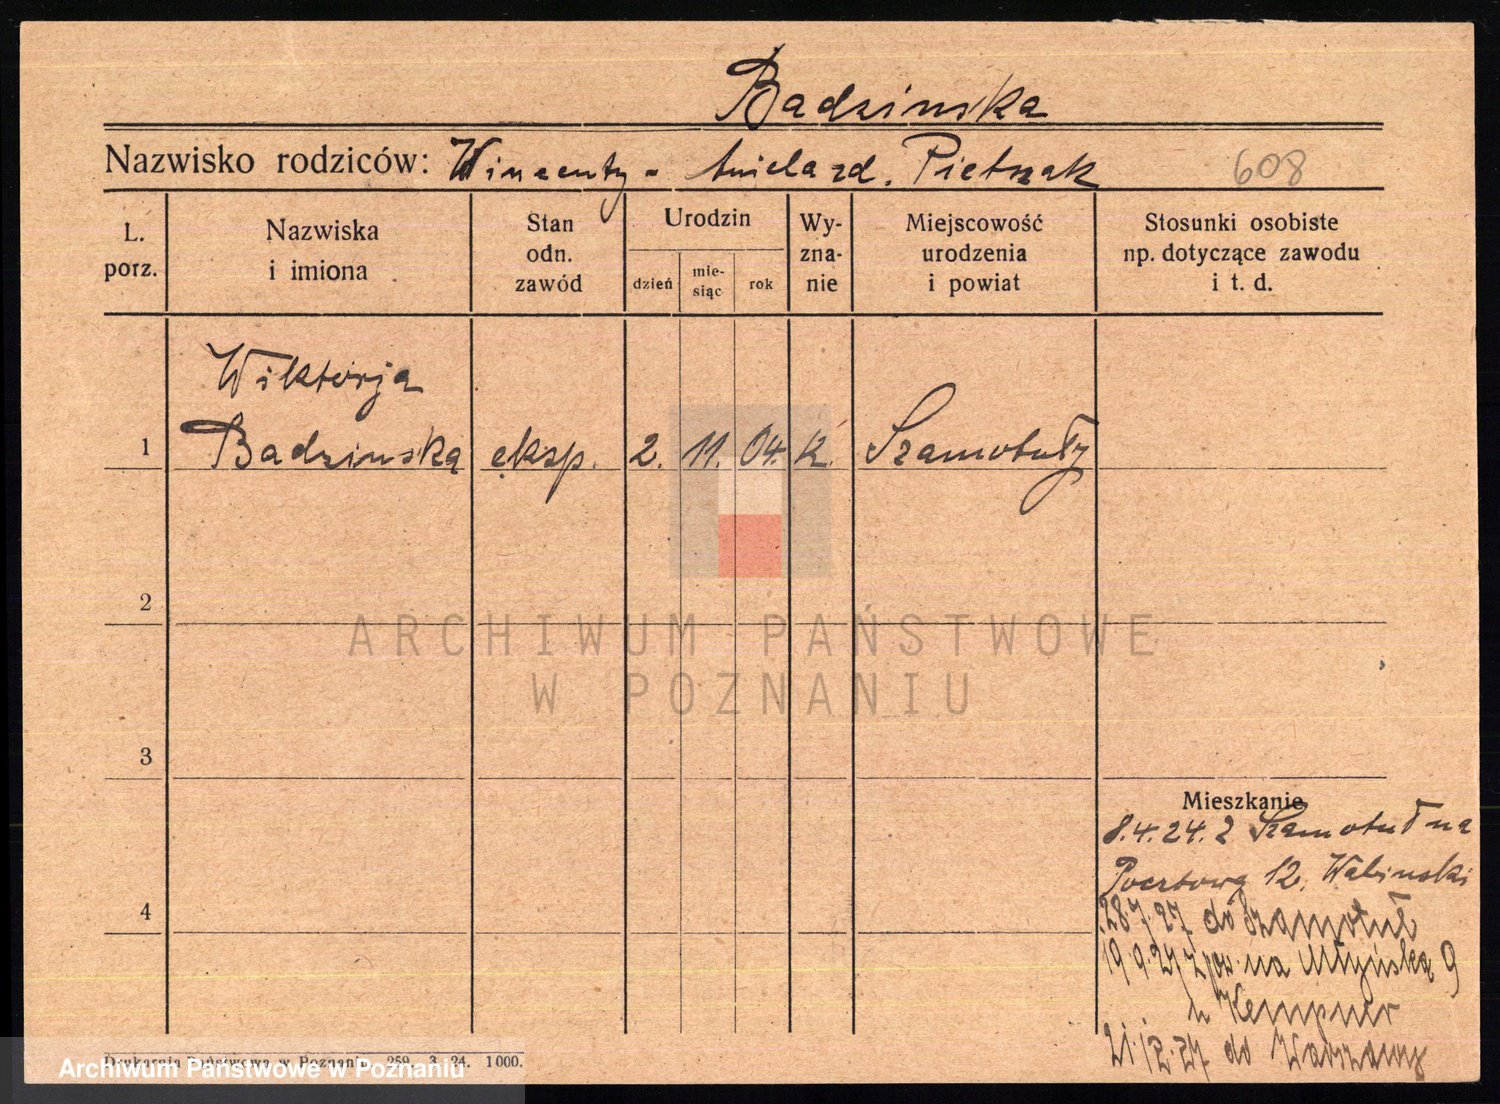 Badzinska
Nazwisko rodziców: Wincenty - Aniela zd. Pietrzak 608
L. porz.
Nazwiska i imiona
Stan odn. zawód
Urodzin
dzień
mie- siąc
rok
Wy- zna- nie
Miejscowość urodzenia i powiat
Stosunki osobiste np. dotyczące zawodu i t. d.
Wiktorja
1 Badzinska eksp. 2. 11. 04. k. Szamotuły
2
ARCHIWUM PAŃSTWOWE
W POZNANIU
3
Mieszkanie
8.4.24. z Szamotuł na
Pocztową 12. Wabinski
4
28.7.27 do Szamotuł
19.9.27 z pow. na Młyńską 9
u Kempner
21.12.27 do Warszawy
Drukarnia Państwowa w Poznaniu 259. 3. 24. 1000.
Archiwum Państwowe w Poznaniu